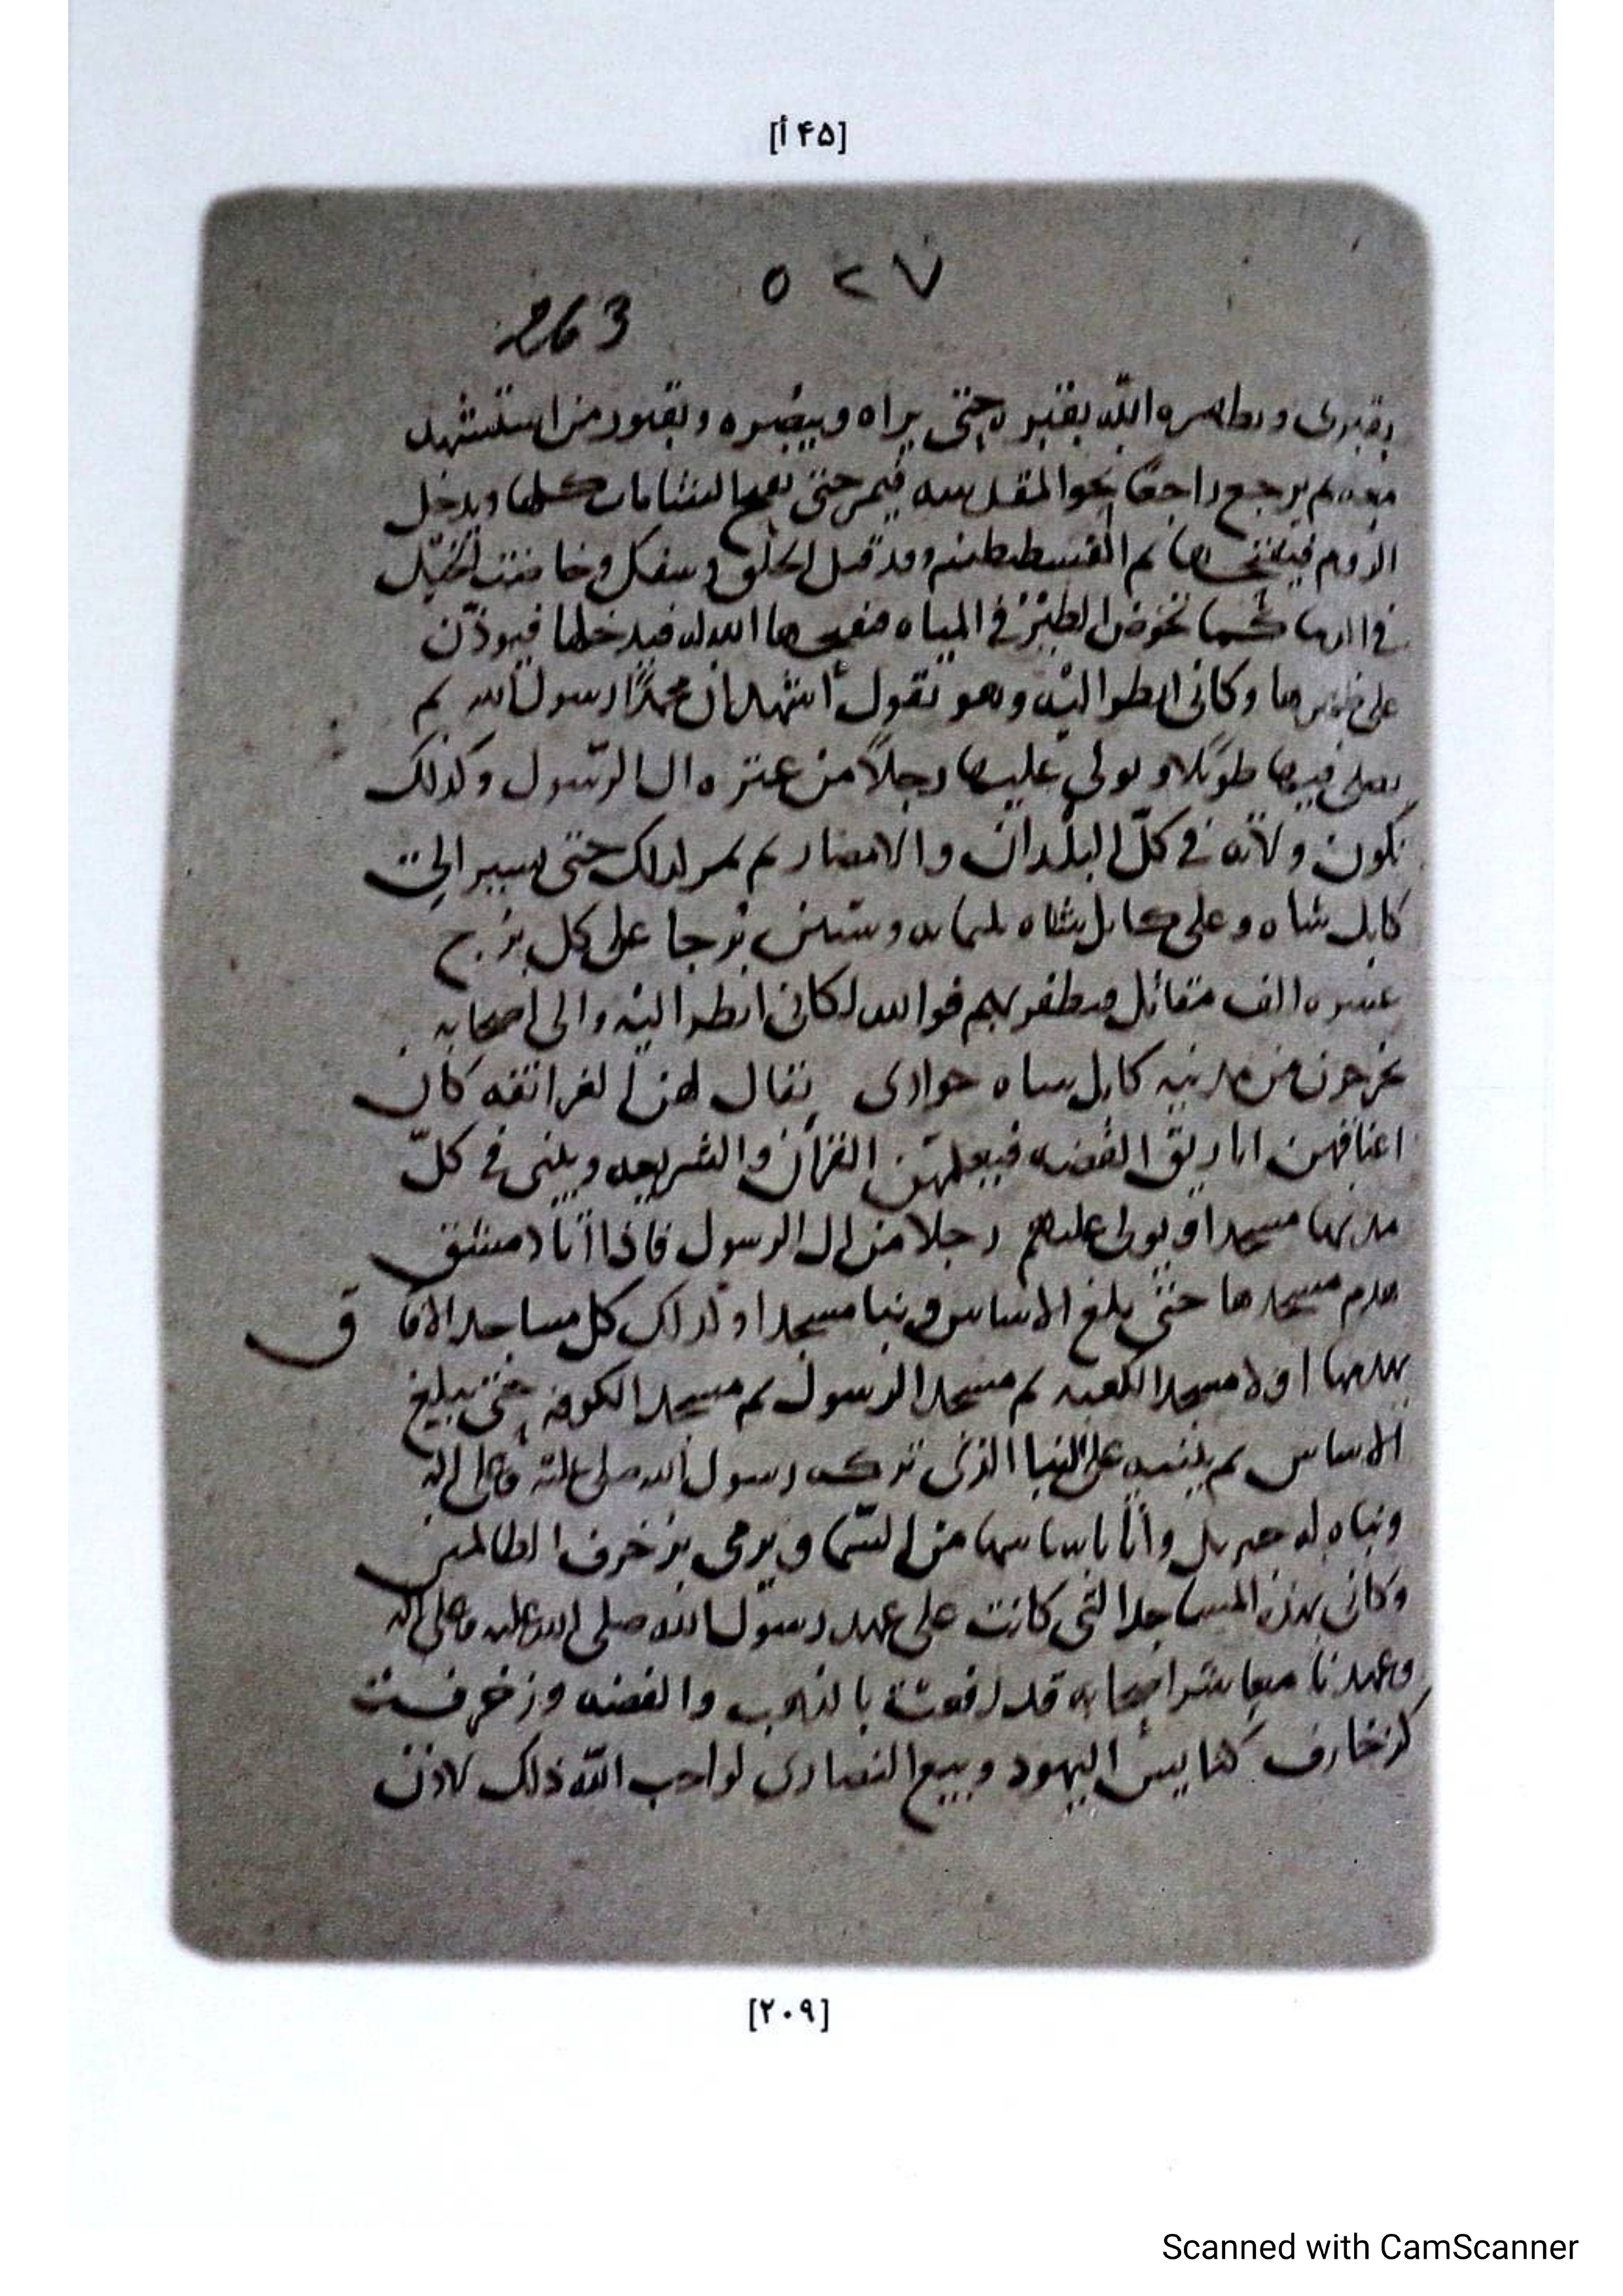 [۴۵ أ]
٥٢٧
263
بقبرى و الله بقبره حتى يراه ويبصره وبقبور من استشهد
معه ثم يرجع راجعا نحو المقدسه فيمر حتى الشامات كلها ويدخل
الروم ثم القسطنطينه وقد قتل الخلق وسفك وخاضت الخيل
فى الدما كما تخوض الطير فى المياه الله له فيدخلها فيوذن
على وكانى انظر اليه وهو يقول اشهد ان محمدا رسول الله ثم
يصلى فيها طويلا ويولى عليها رجلا من عتره ال الرسول وكذلك
تكون ولاته فى كل البلدان والامصار ثم يمر كذلك حتى يسير الى
كابل شاه وعلى كابل شاه ثلثمايه وستين برجا على كل برج
عشره الف مقاتل فيظفر بهم فوالله لكانى انظر اليه والى اصحابه
يخرجون من مدينه كابل شاه جوارى يقال لهن الغرانقه كان
اعناقهن اباريق الفضه فيعلمهن القرآن والشريعه ويبنى فى كل
مدينها مسجدا ويولى عليهم رجلا من ال الرسول فاذا اتا دمشق
هدم مسجدها حتى يبلغ الاساس وبنا مسجدا وكذلك كل مساجد الافاق
يهدمها اولا مسجد الكعبه ثم مسجد الرسول ثم مسجد الكوفه حتى يبلغ
الاساس ثم يبنيه على البنا الذى تركه رسول الله صلى عليه وعلى اله
وبناه له جبريل وأتا باساسها من السما ويرمى بزخرف الظالمين
وكانى بهذه المساجد التى كانت على عهد رسول الله صلى الله عليه وعلى اله
وعهدنا معاشر اصحابه قد رفعت بالذهب والفضه وزخرفت
كزخارف كنايس اليهود وبيع النصارى لو احب الله ذلك لاذن
[۲۰۹]
Scanned with CamScanner